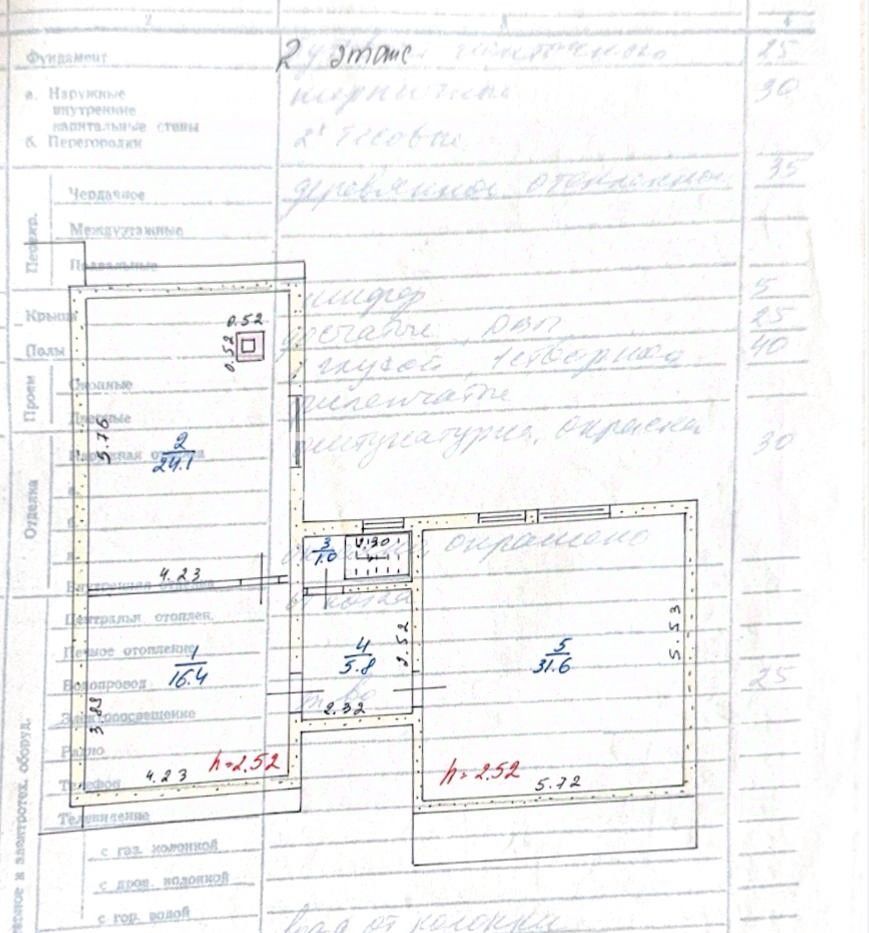 2 3 4
Фундамент 2 этаж 25
а. Наружные 30
внутренние
капитальные стены
б. Перегородки
Чердачное деревянное 35
Междуэтажные
Подвальные
Перекр.
Крыша шифер 5
Полы дощатые, ДВП 25
1 глухой, 1 створная 40
Оконные
Дверные филенчатые
Проем
Наружная отделка штукатурка, окраска 30
а.
Отделка
окрашено
Внутренняя отделка
Центральн. отоплен. от котла
Печное отопление
Водопровод 25
Электроосвещение
Радио
Телефон
Телевидение
с газ. колонкой
с дров. колонкой
с гор. водой вода от колонки
электротех. оборуд.
0.52
0.52
5.76
2
24.1
4.23
3
1.0
1
16.4
3.88
4.23
h=2.52
4
5.8
2.52
2.32
5
31.6
5.53
h=2.52
5.72